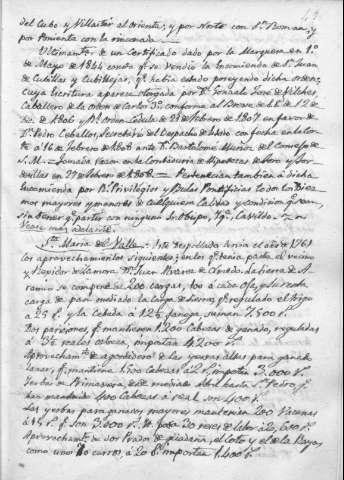 del Cubo y Villaster al Oriente; y por Norte con Sn. Roman, y
por Poniente con la rinconada
Ultimamte. de un Certificado dado por la Marquesa en 1º
de Mayo de 1844 consta qe. se vendio la Encomienda de Sn. Juan
de Cubillas y Cubillejas, qe. habia estado poseyendo dicha orden,
cuya Escritura aparece otorgada por Dn. Gonzalo José de Vilches,
Caballero de la orden de Carlos 3º conforme al Breve de 12 de Dic.
bre. de 1806 y Rl. orden Cedula de 21 de Febrero de 1807 en favor de
Dn. Pedro Ceballos, Secretario del Despacho de Estado con fecha en la Cor-
te á 16 de Febrero de 1808 ante Dn. Bartolomé Muñoz del Consejo de
S. M. = Tomada razon en la Contaduria de Hipotecas de Toro y Tor-
desillas en 27 de Febrero de 1808 = Pertenecian tambien á dicha
Encomienda por Rs. Privilegios y Bulas Pontificias todos los Diez-
mos mayores y menores de cualquiera calidad y condicion qe. sean,
sin tener qe. partir con ningun Sr. Obispo, Yga., Cavildo =
Vease mas adelante.
Sta. Maria del Valle = Este despoblado tenia el año de 1761
los aprovechamientos siguientes; en los qe. tenia parte el vecino
y Regidor de Zamora Dn. Juan Alvarez de
se compone de 200 cargas, 100 á cada oja, y su renta
carga de pan mediado la carga de tierra, qe. regulado el trigo
á 25 r. y la Cebada á 12½ fanega, suman 7.500 rs.
Dos pariciones, qe. mantienen 1.200 Cabezas de ganado, reguladas
á 3½ reales cabeza, importan 4.200 rs.
Aprovechamto. de agostadero de las yerbas altas para ganado
lanar, qe. mantiene 1.500 Cabezas á 2 rs., importan 3.000 rs.
Yerbas de Primavera, desde mediado Abril hasta Sn. Pedro, qe.
han mantenido 400 Cabezas á real, son 400 rs.
Las yerbas para ganados mayores mantenian 200 Vacunas
á 15 rs. qe. son 3.000 rs. Yd. para 30 reses de labor á 20, 600 rs.
Aprovechamto. de dos Prados de guadaña, el Coto y el de la Raya,
como unos 70 carros, á 20 rs. importan 1.400 rs.